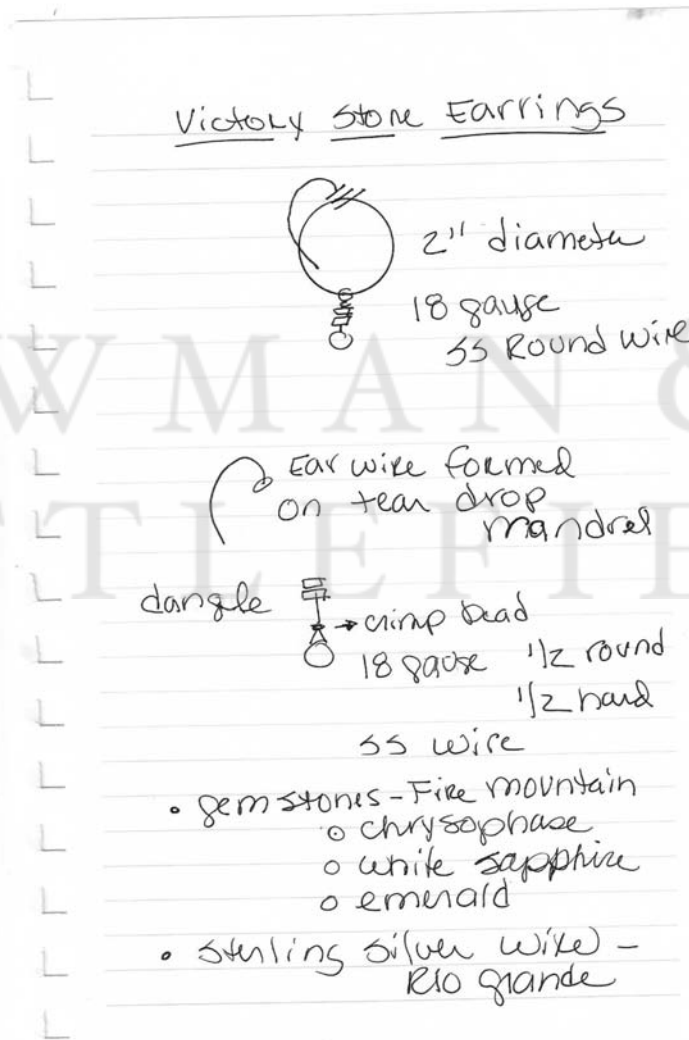 Victory Stone Earrings
2" diameter
18 gauge
SS Round wire
WMAN &
TTLEFIE
Ear wire formed
on tear drop
mandrel
dangle
crimp bead
18 gauge 1/2 round
1/2 hard
SS wire
• gemstones - Fire mountain
o chrysophase
o white sapphire
o emerald
• sterling silver wire -
Rio grande